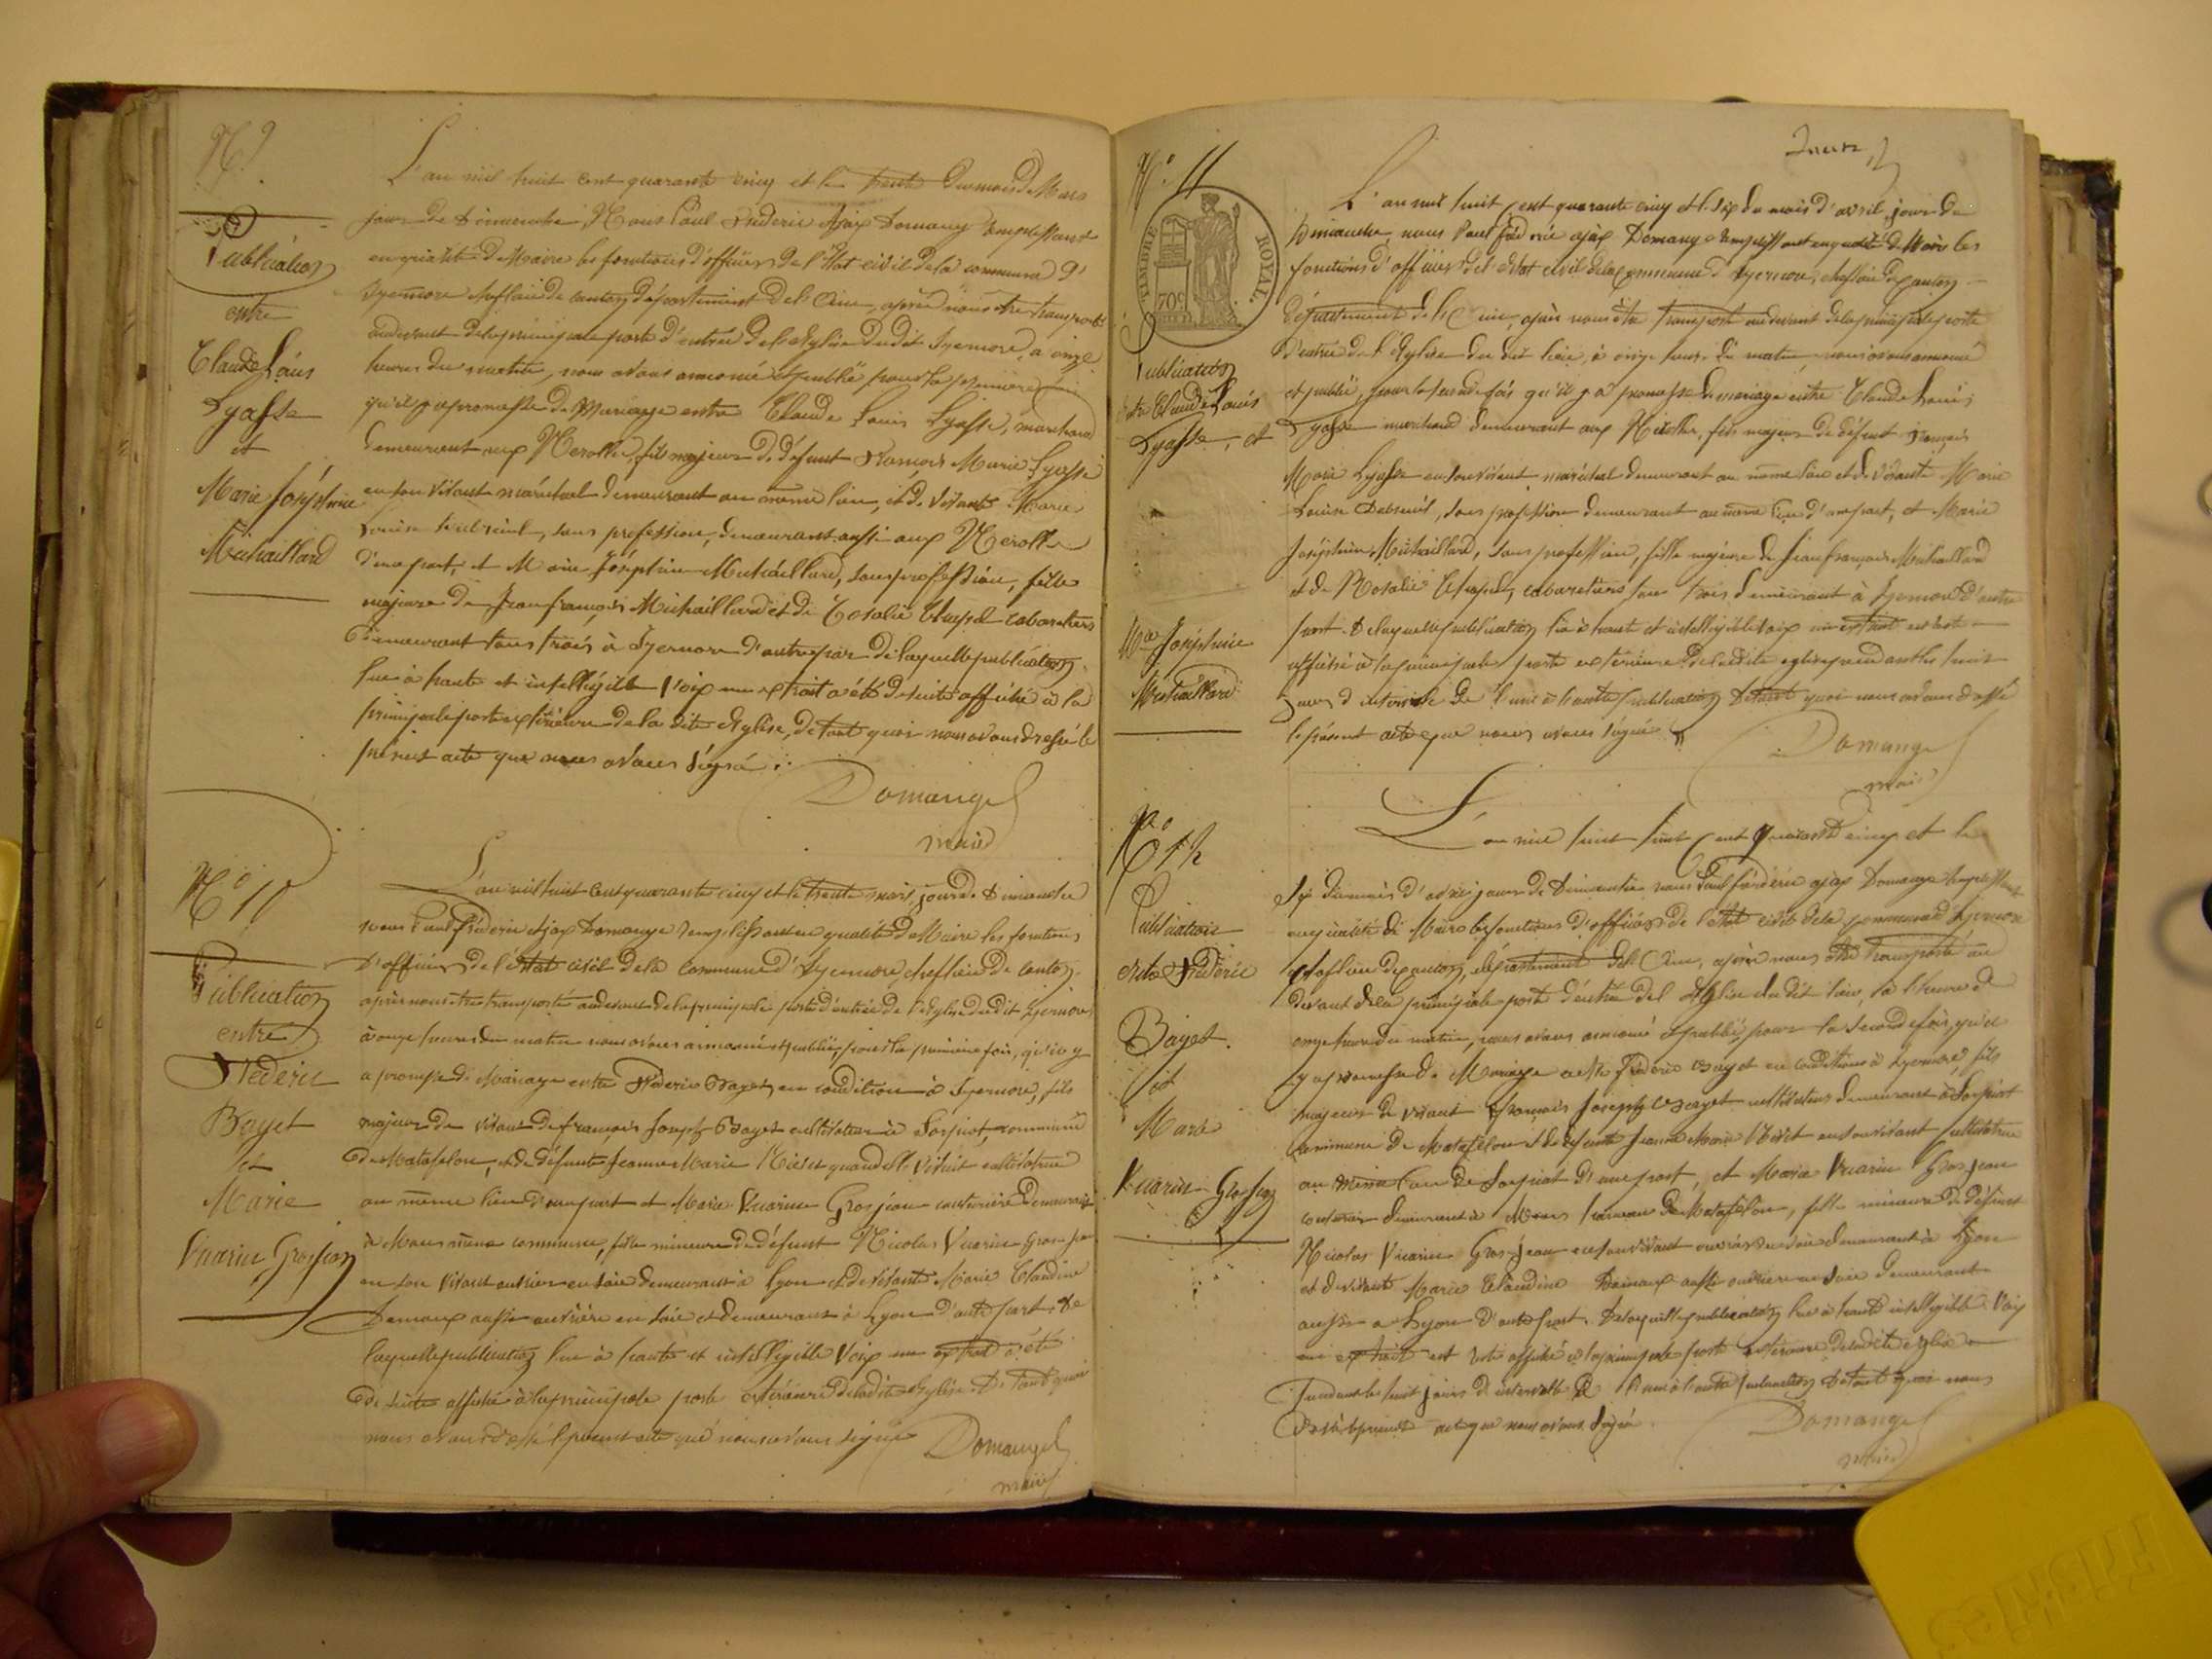 N° 9
Publication
entre
Claude Louis
Lyasse
et
Marie Joséphine
Michaillard
L'an mil huit cent quarante cinq et le trente du mois de Mars
jour de dimanche, Nous Paul Frédéric Ajax Domange remplissant
en qualité de Maire les fonctions d'officier de l'état civil de la commune d'
Izernore cheflieu de canton département de l'Ain, après nous être transporté
au devant de la principale porte d'entrée de l'Eglise du dit Izernore, à onze
heures du matin, nous avons annoncé et publié pour la première fois
qu'il y a promesse de Mariage entre Claude Louis Lyasse, marchand
demeurant aux Nerolle, fils majeur de défunt François Marie Lyasse
en son vivant maréchal demeurant au même lieu, et de vivante Marie
Louise Dubreuil, sans profession, demeurant aussi aux Nerolle
d'une part, et Marie Joséphine Michaillard, sans profession, fille
majeure de Jean françois Michaillard et de Rosalie Chapel cabaretiers
demeurant tous trois à Izernore d'autre part de laquelle publication,
lue à haute et intelligible voix un extrait a été de suite affiché à la
principale porte extérieure de la dite Eglise, de tout quoi nous avons dressé le
présent acte que nous avons signé
Domange
maire
N° 10
Publication
entre
Fréderic
Bayet
et
Marie
Vuarin Grosjean
L'an mil huit cent quarante cinq et le trente mars, jour de Dimanche
nous Paul frédéric Ajax Domange remplissant en qualité de Maire les fonctions
d'officier de l'état civil de la commune d'Izernore cheflieu de canton
après nous être transporté au devant de la principale porte d'entrée de l'Eglise du dit Izernore
à onze heures du matin nous avons annoncé et publié, pour la première fois, qu'il y
a promesse de Mariage entre Fréderic Bayet, en condition à Izernore, fils
majeur de vivant de françois Joseph Bayet cultivateur à Sorpiat, commune
de Matafelon, et de défunte Jeanne Marie quand elle vivait cultivatrice
au même lieu d'une part et Marie Vuarin Grosjean couturière demeurant
à Mons même commune, fille mineure de défunt Nicolas Vuarin Grosjean
en son vivant ouvrier en soie demeurant à Lyon et de vivante Marie Claudine
Demaux aussi ouvrière en soie et demeurant à Lyon d'autre part, de
laquelle publication lue à haute et intelligible voix un extrait a été
de suite affiché à la principale porte extérieure de la dite Eglise. De tout quoi
nous avons dressé le présent acte que nous avons signé
Domange
maire
N° 11
TIMBRE ROYAL.
70c
Publication
entre Claude Louis
Lyasse, et
Mie Joséphine
Michaillard
L'an mil huit cent quarante cinq et le six du mois d'avril, jour de
Dimanche, nous Paul fréderic ajax Domange remplissant en qualité de Maire les
fonctions d'officier de l'état civil de la Commune d'Izernore, cheflieu de canton
département de l'Ain, après nous être transporté au devant de la principale porte
d'entrée de l'Eglise du dit lieu, à onze heures du matin nous avons annoncé
et publié, pour la seconde fois qu'il y a promesse de mariage entre Claude Louis
Lyasse marchand demeurant aux Nerolle, fils majeur de défunt François
Marie Lyasse en son vivant maréchal demeurant au même lieu et de vivante Marie
Louise Dubreuil, sans profession demeurant au même lieu d'une part, et Marie
Joséphine Michaillard, sans profession, fille majeure de Jean françois Michaillard
et de Rosalie Chapel, cabaretiers tous trois demeurant à Izernore d'autre
part. De laquelle publication lue à haute et intelligible voix un extrait est resté
affiché à la principale porte extérieure de la dite eglise pendant les huit
jours d'intervale de l'une à l'autre publication De tout quoi nous avons dressé
le présent acte que nous avons signé
Domange
maire
N° 12
Publication
entre Fréderic
Bayet
et
Marie
Vuarin Grosjean
L'an mil huit huit Cent Quarante cinq et le
six du mois d'avril jour de Dimanche nous Paul fréderic ajax Domange remplissant
en qualité de Maire les fonctions d'officier de l'état civil de la commune d'Izernore
cheflieu de canton, département de l'Ain, après nous être transporté au
devant de la principale porte d'entrée de l'Eglise du dit lieu, à l'heure de
onze heure du matin, nous avons annoncé et publié, pour la seconde fois, qu'il
y a promesse de Mariage entre Fréderic Bayet en condition à Izernore, fils
majeur de vivant François Joseph Bayet cultivateur demeurant à Sorpiat
commune de Matafelon et de défunte Jeanne Marie en son vivant cultivatrice
au même lieu de Sorpiat d'une part, et Marie Vuarin Grosjean
couturière demeurant à Mons hameau de Matafelon, fille mineure de défunt
Nicolas Vuarin Grosjean en son vivant ouvrier en soie demeurant à Lyon
et de vivante Marie Claudine Demaux aussi ouvrière en soie demeurant
aussi à Lyon d'autre part. De laquelle publication lue à haute intelligible Voix
un extrait est resté affiché à la principale porte extérieure de la dite eglise
Pendant les huit jours d'intervalle de l'une à l'autre publication De tout quoi nous
dressé le présent acte que nous avons signé
Domange
maire
Friskies